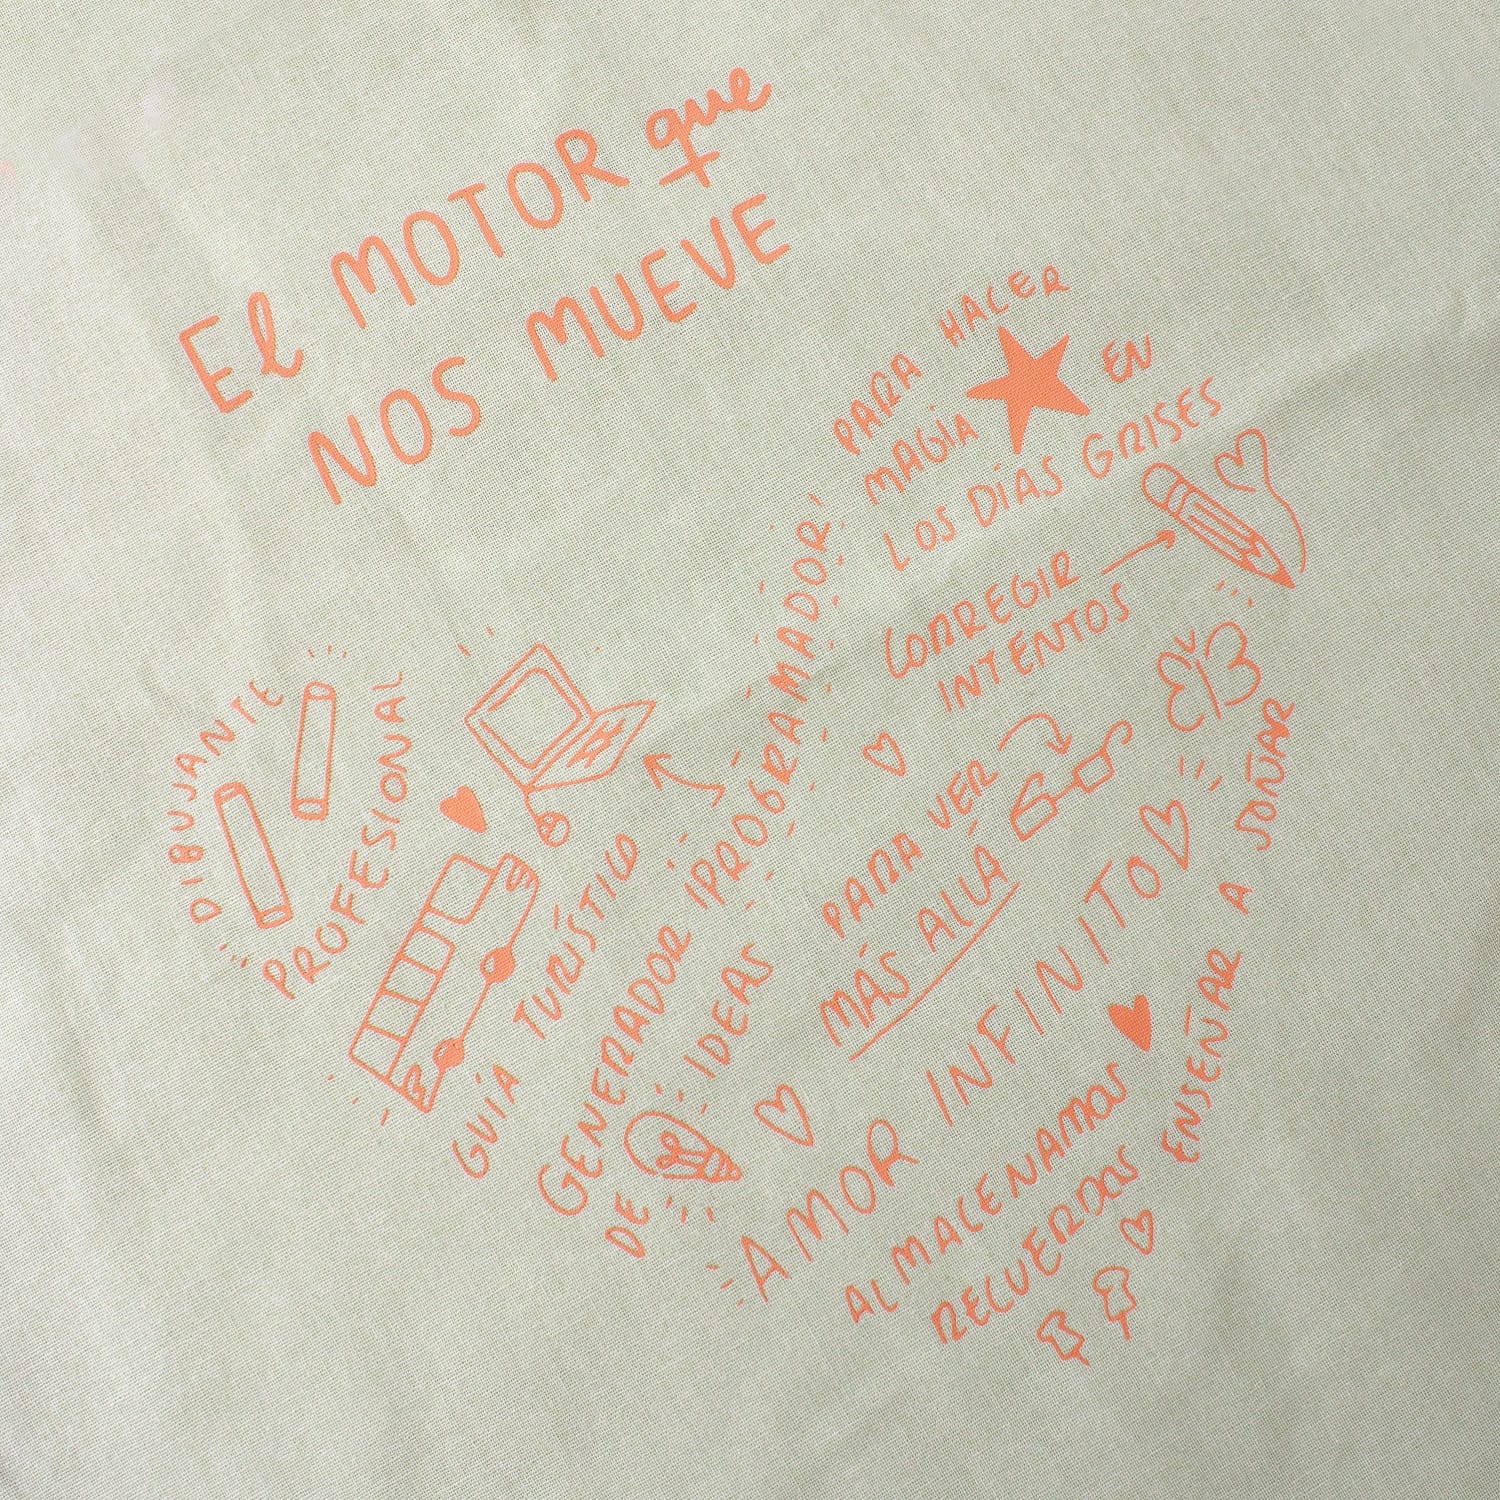 El MOTOR que
NOS MUEVE
PARA HACER
MAGIA EN
LOS DÍAS GRISES
CORREGIR
INTENTOS
DIBUJANTE
PROFESIONAL
¡PROGRAMADOR!
PARA VER
MÁS ALLÁ
GUÍA TURÍSTICO
GENERADOR
DE IDEAS
AMOR INFINITO
ALMACENAMOS
RECUERDOS
ENSEÑAR A SOÑAR